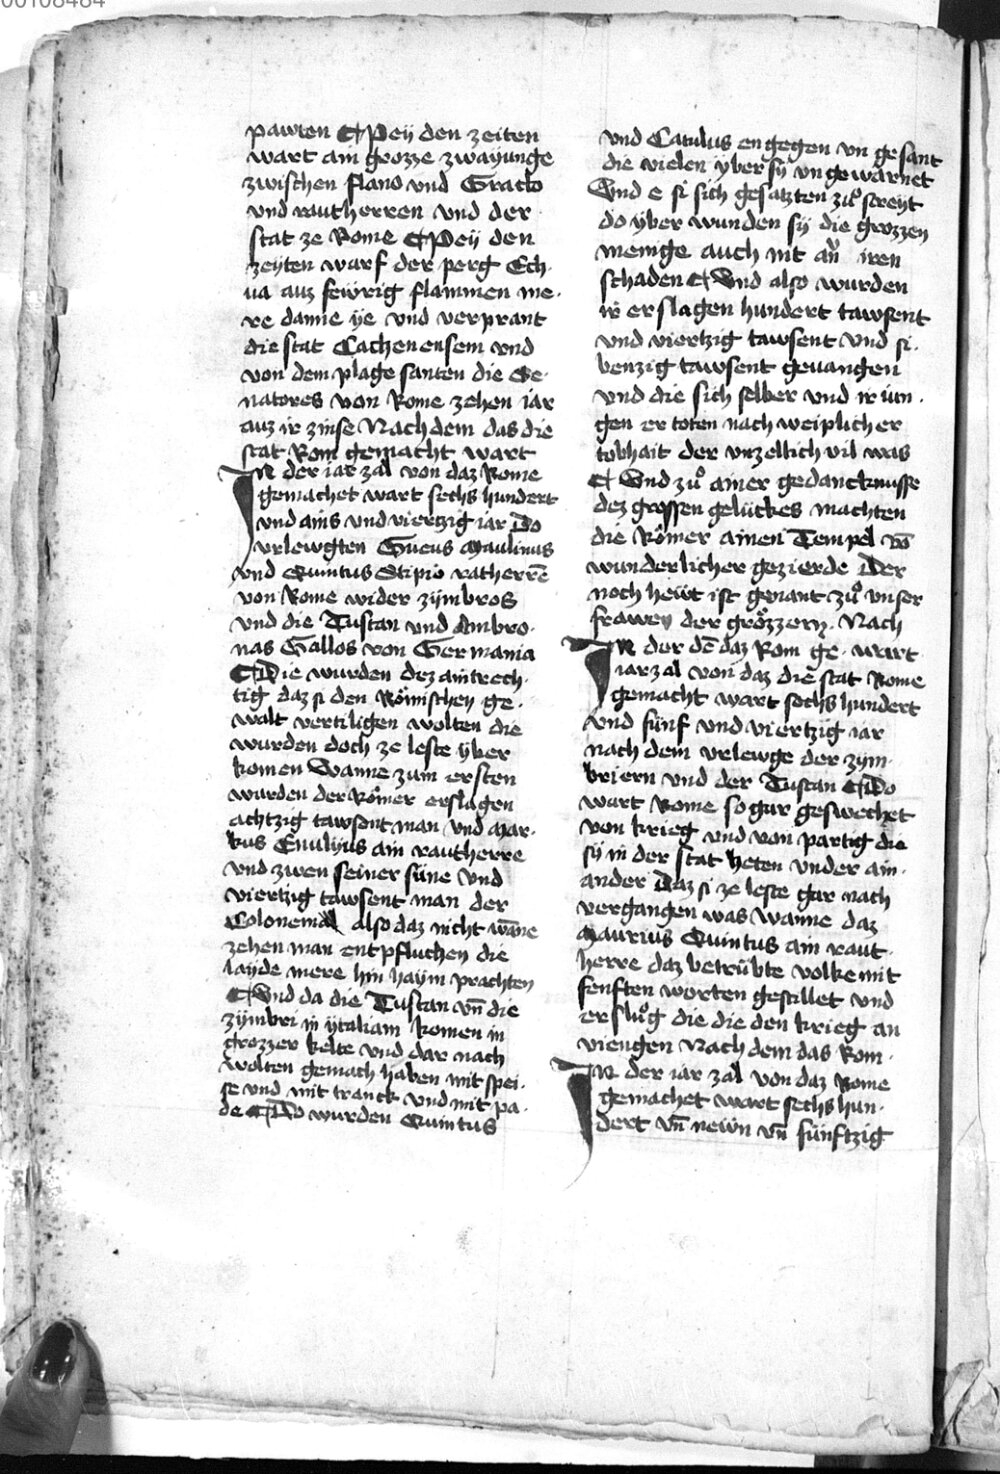 00108484
pawten ¶ Peÿ den zeiten
wart ain grozze zwaÿunge
zwischen flano vnd Gracko
vnd rautherren vnd der
stat ze Rome ¶ Peÿ den
zeÿten warf der perg Ech-
na auz fewrig flammen me-
re danne ÿe vnd verprant
die stat Cachenensem vnd
von dem plage santen die Se-
natores von Rome zehen iar
auz ir zinse Nach dem das die
stat Rom gemacht wart
IN der iar zal von daz Rome
gemachet wart sechs hundert
vnd ains vnd viertzig iar Do
vrlewgten Gneus Maulinus
vnd Quintus Stipio ratherrē
von Rome wider zÿmbros
vnd die Tustan vnd Ambro-
nas Gallos von Germania
¶ Die wurden dez aintrech-
tig daz si den Römischen ge-
walt vertiligen wolten die
wurden doch ze leste ÿber
komen Wanne zum ersten
wurden der Römer erslagen
achtzig tawsent man vnd Mar-
kus Emilÿus ain rautherre
vnd zwen seiner süne vnd
viertzig tawsent man der
also daz nicht wāne
zehen man entpfluchen die
laÿde mere hin haÿm prachten
¶ Vnd da die Tustan vn̄ die
zÿmbri in ÿtaliam komen in
grozzer kelte vnd dar nach
wolten gemach haben mit spei-
se vnd mit tranck vnd mit pa-
de ¶ Do wurden Quintus
vnd Catulus engegen vn gesant
die vielen ÿber sÿ vngewarnet
Vnd e si sich gesatzten zuͦ streÿt
do ÿber wunden sÿ die grozzen
menige auch nit an iren
schaden ¶ Vnd also wurden
ir erslagen hundert tawsent
vnd viertzig tawsent vnd si-
benzig tawsent geuangen
vnd die sich selber vnd ir iun-
gen er toten nach weiplicher
tobhait der vnzellich vil was
¶ Vnd zuͦ ainer gedancknusse
dez grossen gelückes machten
die Römer ainen Tempel vō
wunderlicher gezierde Der
noch hewt ist genant zuͦ vnser
frawen der grözzern. Nach
IN der dē daz Rom ge- wart
iarzal von daz die stat Rome
gemacht wart sechs hundert
vnd fünf vnd viertzig iar
nach dem vrlewge der zÿm-
briern vnd der Tustan ¶ Do
wart Rome so gar geswechet
von krieg vnd von partig die
sÿ in der stat heten vnder ain-
ander Daz si ze leste gar nach
vergangen was wanne daz
Maurius Quintus ain raut-
herre daz betrübte volke mit
senften worten gestillet vnd
ersluͦg die die den krieg an
viengen Nach dem das Rom-
IN der iar zal von daz Rome
gemachet wart sechs hun-
dert vn̄ newn vn̄ fünftzig